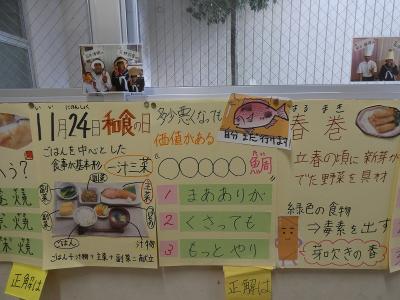 いい にほんしょく
11月24日 和食の日
ごはんを中心とした
食事が基本形 一汁三菜
副菜
主菜
副菜
ごはん
汁物
ごはん＋汁物＋主菜＋副菜二献立
多少悪くなっても
価値がある
○○○○○鯛
たい
1 まああありが
2 くさっても
3 もっとやり
正解は
はるまき
春巻
立春の頃に新芽が
でた野菜を具材
緑色の食物
→毒素を出す
芽吹きの春
正解は